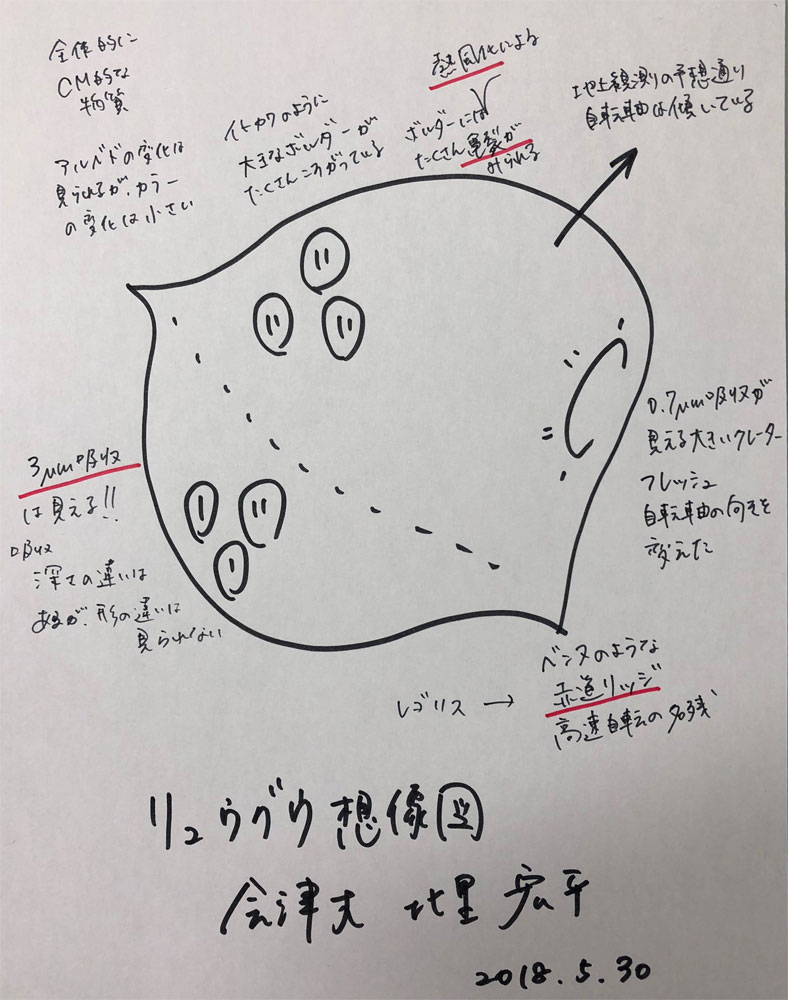 全体的に
CM的な
物質
アルベドの変化は
見られるが、カラー
の変化は小さい
イトカワのように
大きなボルダーが
たくさんころがっている
熱風化による
ボルダーには
たくさん亀裂が
みられる
地上観測の予想通り
自転軸は傾いている
3μm吸収
は見える!!
吸収
深さの違いは
あるが、形の違いは
見られない
0.7μm吸収が
見える大きいクレーター
フレッシュ
自転軸の向きを
変えた
レゴリス →
ベンヌのような
赤道リッジ
高速自転の名残
リュウグウ想像図
会津大 北里 宏平
2018.5.30